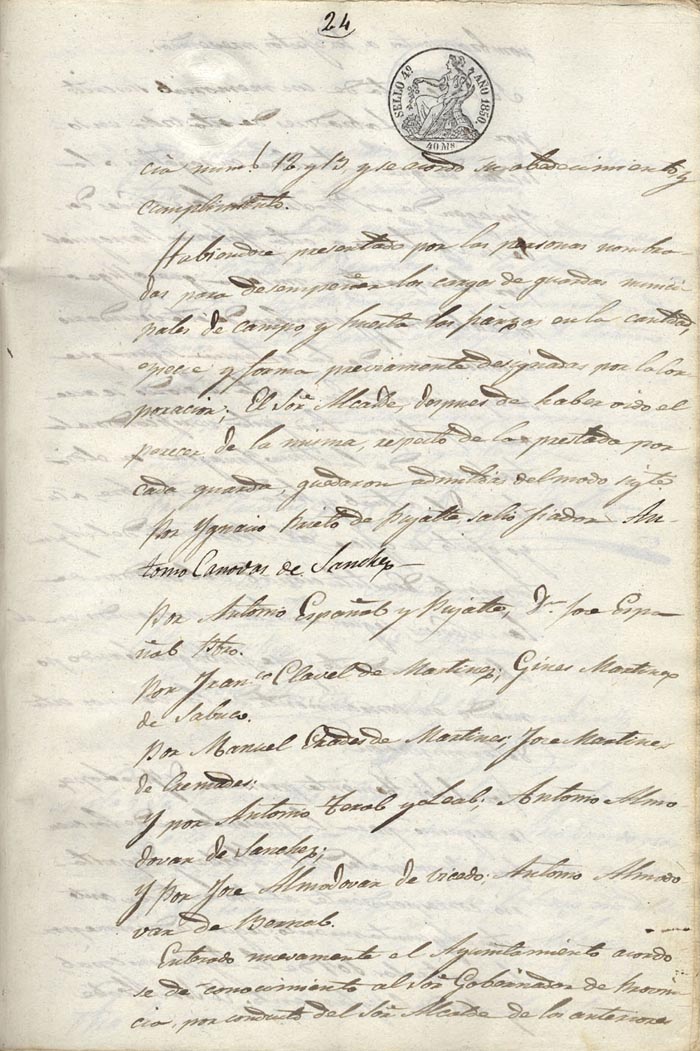 24
SELLO 4º AÑO 1850.
40 Ms
cia num.s 12 y 13, y se acordo su obedecimiento y
cumplimiento.
Habiendose presentado por las personas nombra-
das para desempeñar los cargos de guardas munici
pales de campo y huerta las fianzas en la cantidad,
especie y forma previamente designadas por la Cor
poracion; El Sor. Alcalde, despues de haber oido el
parecer de la misma, respecto de la prestada por
cada guarda, quedaron admitidas del modo sigte
Por Ygnacio Prieto de Rijalte salio fiador An-
tonio Canovas de Sanchez
Por Antonio Españal y Rijalte, Dn. Jose Espa-
ñal Pbro.
Por Franco Clavel de Martinez, Gines Martinez
de Sabuco.
Por Manuel Prades de Martines, Jose Martines
de Cremades;
Y por Antonio Terol y Leal; Antonio Almo
dovar de Sanchez;
Y por Jose Almodovar de Vicedo; Antonio Almodo
var de Bernal.
Enterado nuevamente el Ayuntamiento acordo
se dé conocimiento al Sor. Gobernador de Provin-
cia, por conducto del Sor. Alcalde de los anteriores